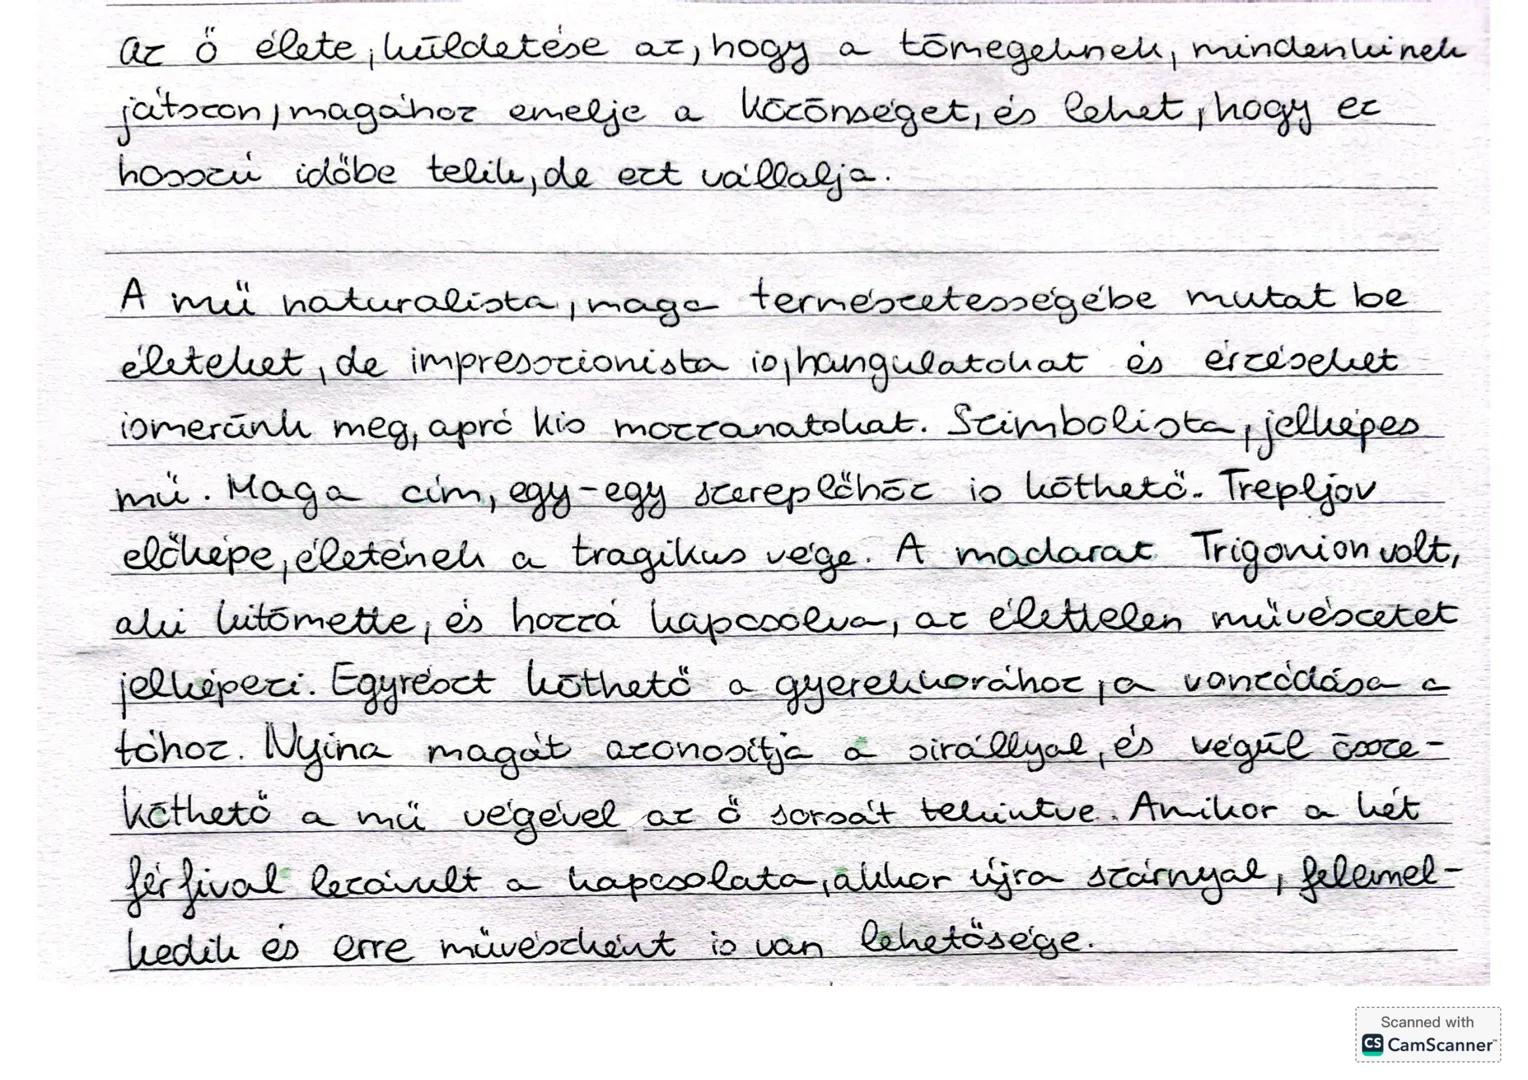 az ő élete, küldetése az, hogy a tömegeknek, mindenkinek
játszon, magához emelje a közönséget, és lehet, hogy ez
hosszú időbe telik, de ezt vállalja.
A mű naturalista, maga természetességébe mutat be
életeket, de impresszionista is, hangulatokat és érzéseket
ismerünk meg, apró kis mozzanatokat. Szimbolista, jelképes
mű. Maga cím, egy-egy szereplőhöz is köthető. Trepljov
előképe, életének a tragikus vége. A madarat Trigonion volt,
aki kitömette, és hozzá kapcsolva, az élettelen művészetet
jelképezi. Egyrészt köthető a gyerekkorához, a vonzódása a
tóhoz. Nyina magát azonosítja a sirállyal, és végül össze-
köthető a mű végével az ő sorsát tekintve. Amikor a két
férfival lezárult a kapcsolata, akkor újra szárnyal, felemel-
kedik és erre művészként is van lehetősége.
Scanned with
CS CamScanner